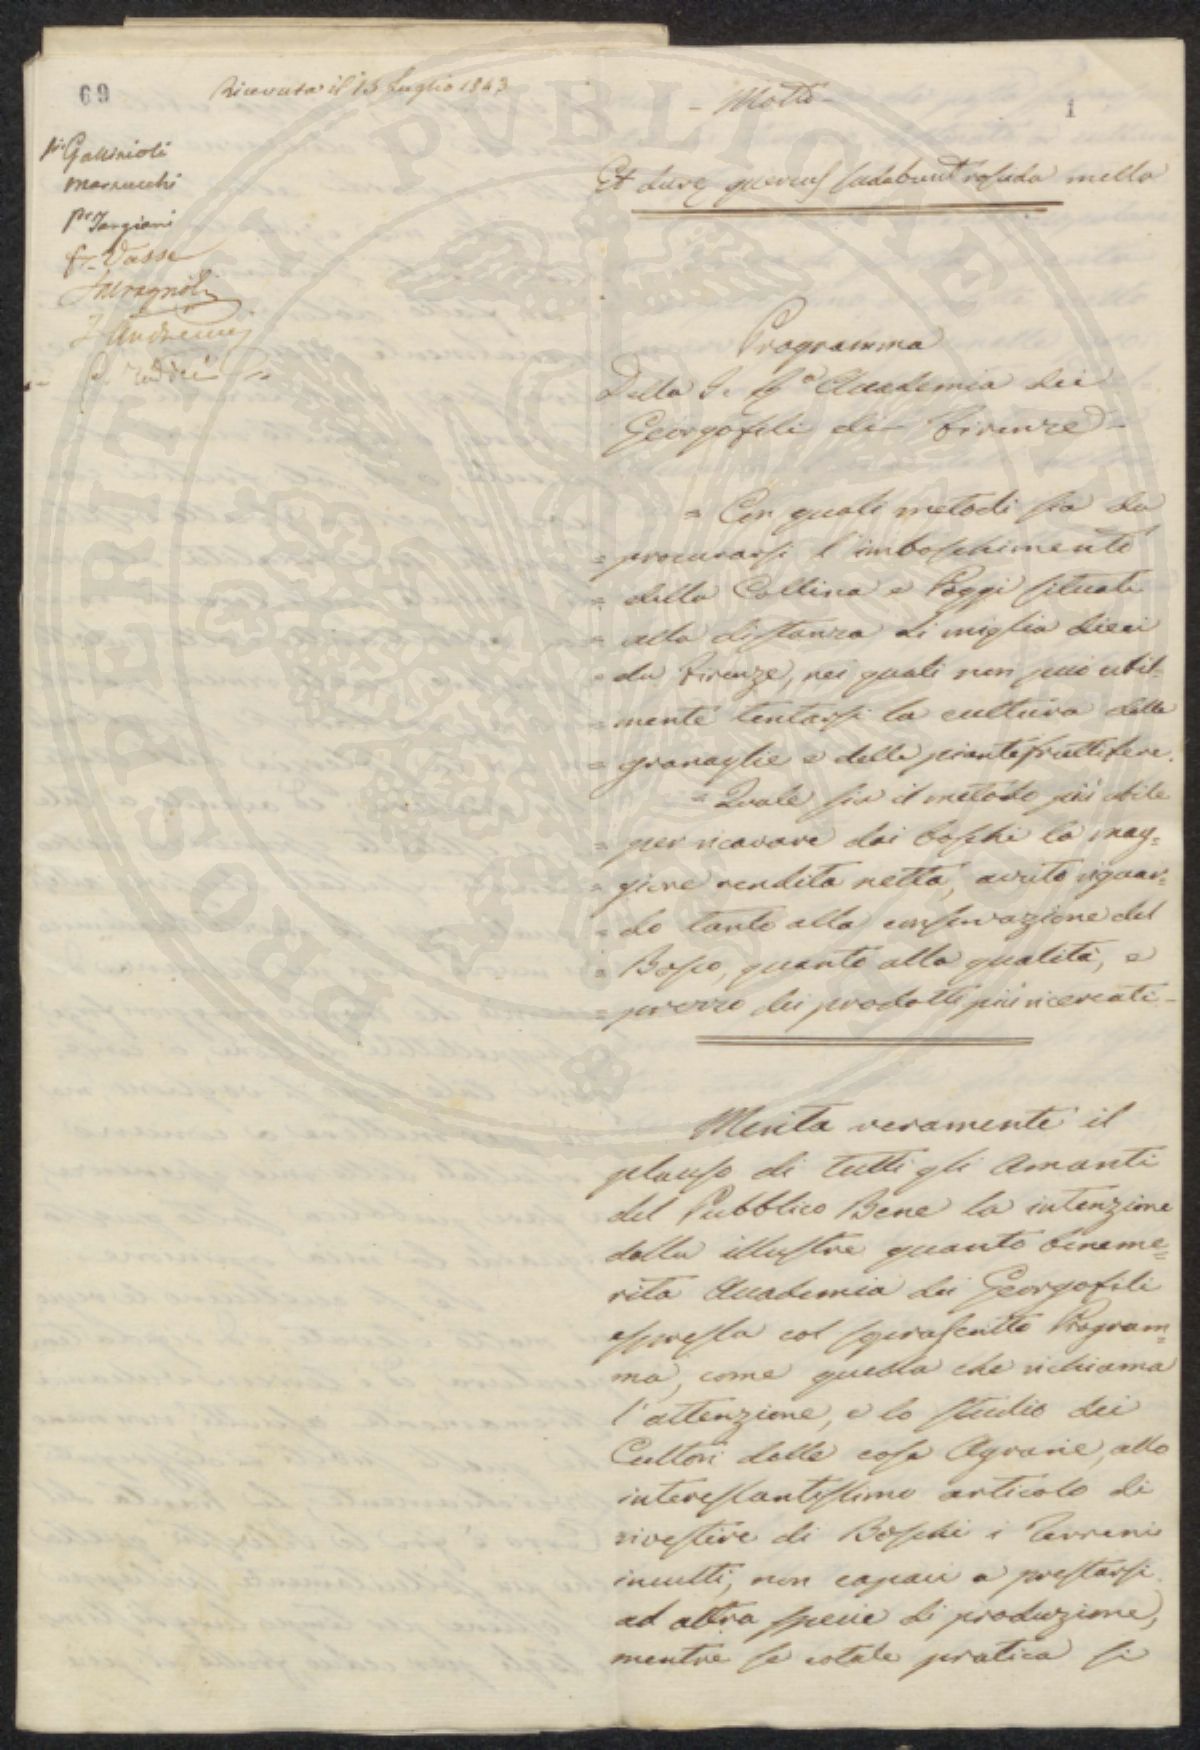 69
Ricevuta il 15 Luglio 1843
Marzucchi
Targioni
1
- Motto -
Et duræ quercus sudabunt roscida mella
Programma
Della I. R. Accademia dei
Georgofili di Firenze -
= Con quali metodi sia da
= procurarsi l'imboschimento
= della Collina e Poggi situati
= alla distanza di miglia dieci
= da Firenze, nei quali non può util-
= mente tentarsi la cultura delle
= granaglie e delle piante fruttifere.
= Quale sia il metodo più utile
= per ricavare dai boschi la mag=
= giore rendita netta, avuto riguar-
= do tanto alla conservazione del
= Bosco, quanto alla qualità, e
= prezzo dei prodotti più ricercati -
Merita veramente il
plauso di tutti gli Amanti
del Pubblico Bene la intenzione
della illustre quanto beneme=
rita Accademia dei Georgofili
espressa col soprascritto Program=
ma, come quella che richiama
l'attenzione, e lo studio dei
Cultori delle cose Agrarie, allo
interessantissimo articolo di
rivestire di Boschi i Terreni
incolti, non capaci a prestarsi
ad altra specie di produzione,
mentre se cotale pratica si
PROSPERITATI PUBLICAE